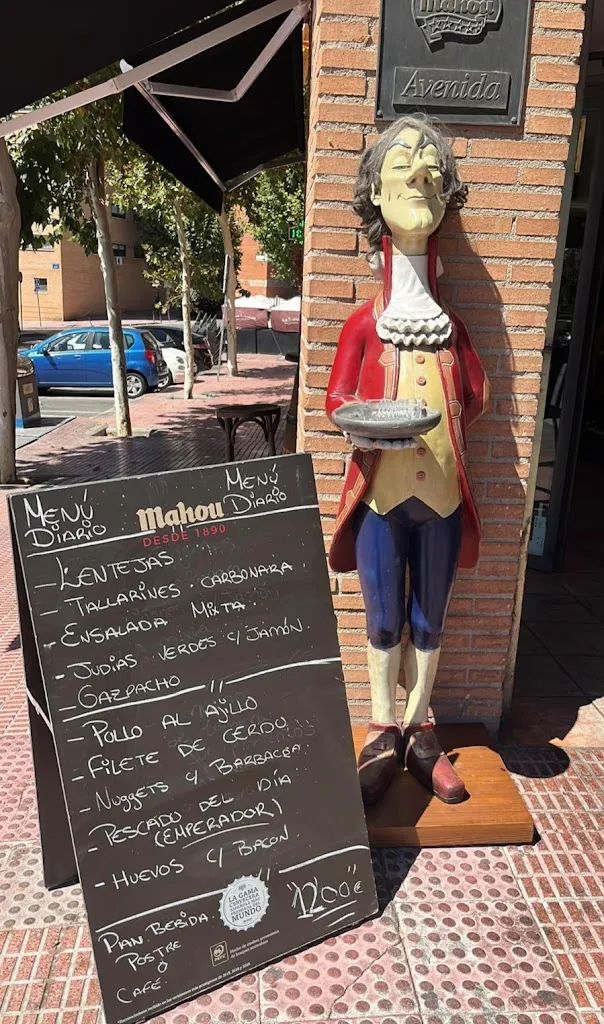 Mahou
Avenida
MENÚ DIARIO
MENÚ DIARIO
Mahou
DESDE 1890
- LENTEJAS
- TALLARINES CARBONARA.
- ENSALADA MIXTA.
- JUDIAS VERDES C/ JAMÓN.
- GAZPACHO
- POLLO AL AJILLO
- FILETE DE CERDO
- NUGGETS C/ BARBACOA
- PESCADO DEL DÍA
(EMPERADOR)
- HUEVOS C/ BACON.
PAN. BEBIDA.
POSTRE
O
CAFÉ.
LA GAMA
CERVECERA
MUNDO
"12'00€"